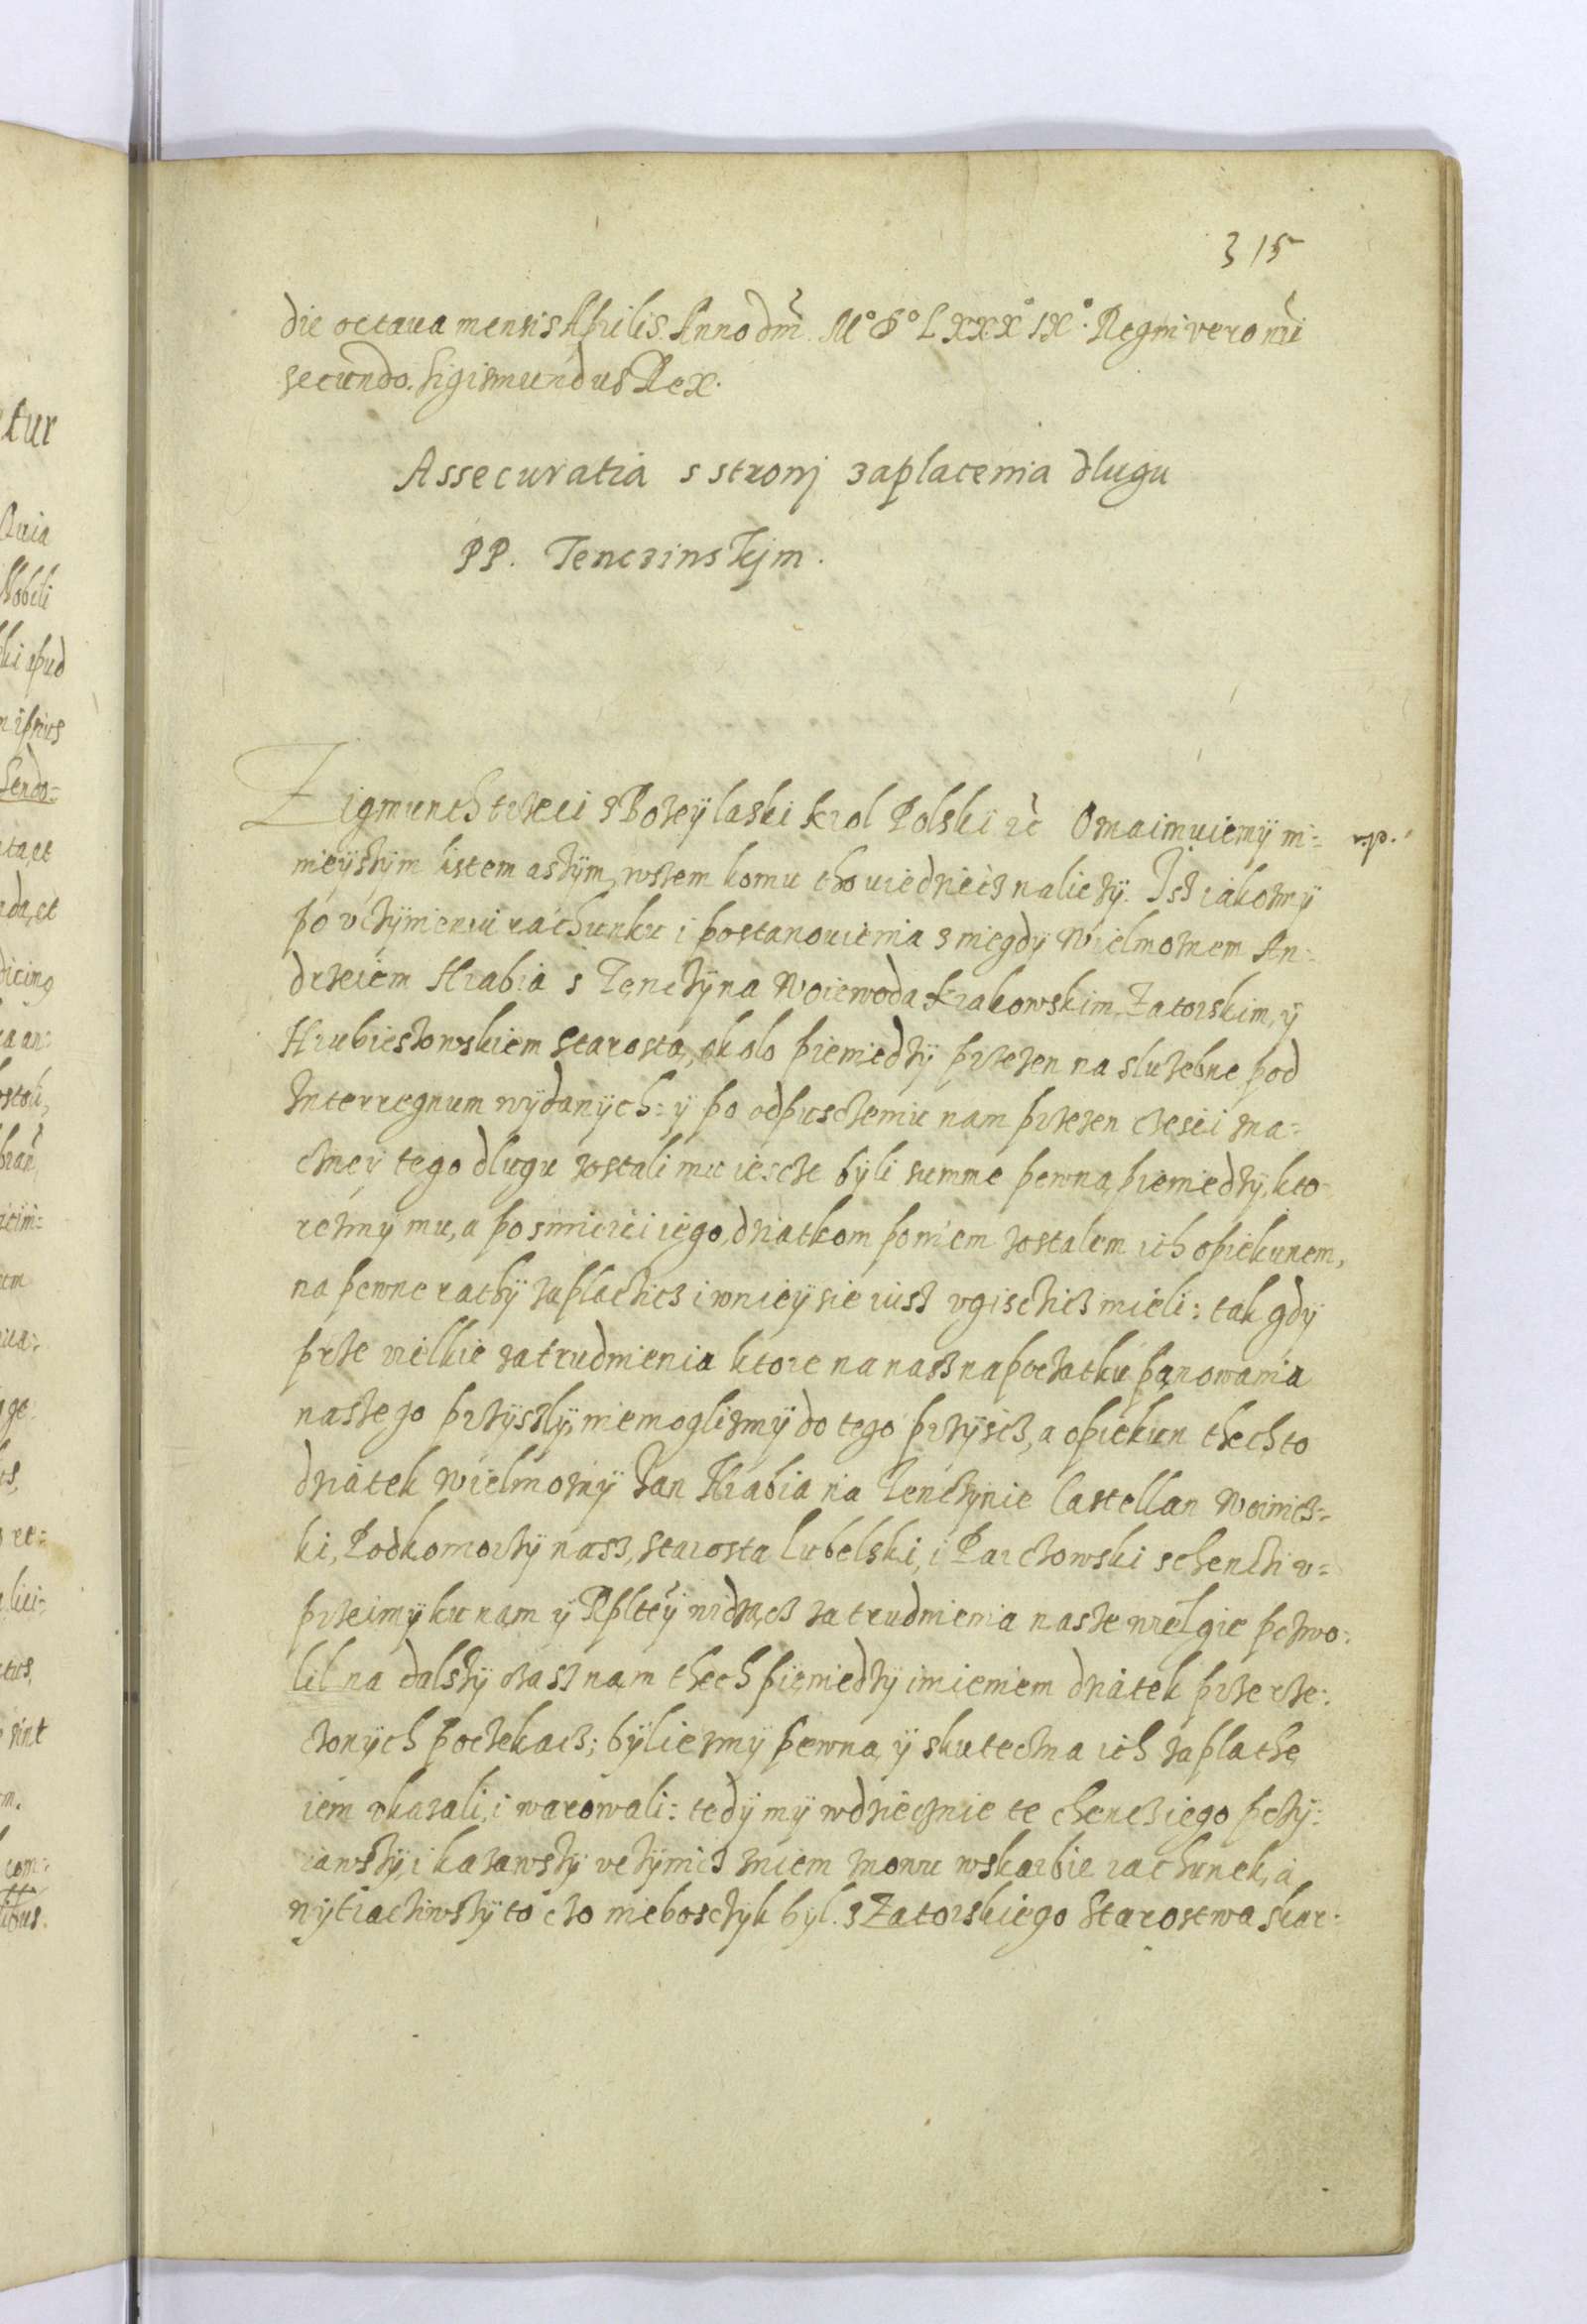 315
die octaua mensis Aprilis. Anno dni. M° D° LXXX° IX°. Regni vero nri
secundo. Sigismundus Rex.
Assecuratia s stronj zaplacenia dlugu
PP. Tenczinskjm.
Zigmunth trzeci z Bozeÿ laski krol Polski etc Oznaimuiemÿ ni=
nieÿszÿm listem aszÿm, wszem komu tho wiedziecz nalieżÿ. Isz iakozmÿ
po vczÿnieniu rachunku i postanowienia z niegdÿ Wielmoznem An=
drzeiem Hrabia s Tęnczÿna Woiewoda Krakowskim, Zatorskim, ÿ
Hrubieszowskiem Starostą, okolo pieniedzÿ przezen na sluzebne pod
Interregnum wÿdanÿch: ÿ po odpusczeniu nam przezen czesci zna=
cznei tego dlugu zostali mu iescze bÿli summe pewną pieniedzÿ, kto
rezmÿ mu, a po smierci iego, dziatkom poniem zostalem ich opiekunem,
na pewne ratÿ zaplacicz i wnieÿ sie iusz vgisczicz mieli: tak gdÿ
prze wielkie zatrudnienia ktore na nasz na początku panowania
naszego przÿszlÿ, nie moglizmÿ do tego przÿsicz, a opiekun thechto
dziatek Wielmoznÿ Jan Hrabia na Tenczÿnie Castellan Woinicz=
ki, Podkomorzÿ nasz, Starosta Lubelski, i Parczowski s chenczi v=
przeimÿ ku nam ÿ Rplteÿ widzącz zatrudnienia nasze wielgie pozwo=
lil na dalszÿ czasz nam thech pieniedzÿ imieniem dziatek przerze=
czonÿch poczekacz; bÿliezmÿ pewną ÿ skuteczna ich zaplathe
iem vkazali, i warowali: tedÿ mÿ wdziecznie te chencz iego pczÿ=
iawszÿ, i kazawszÿ vczÿnicz zniem znowu wskarbie rachunek, a
wÿtraciwszÿ to czo nieboszczÿk bÿl z Zatorskiego Starostwa skar=